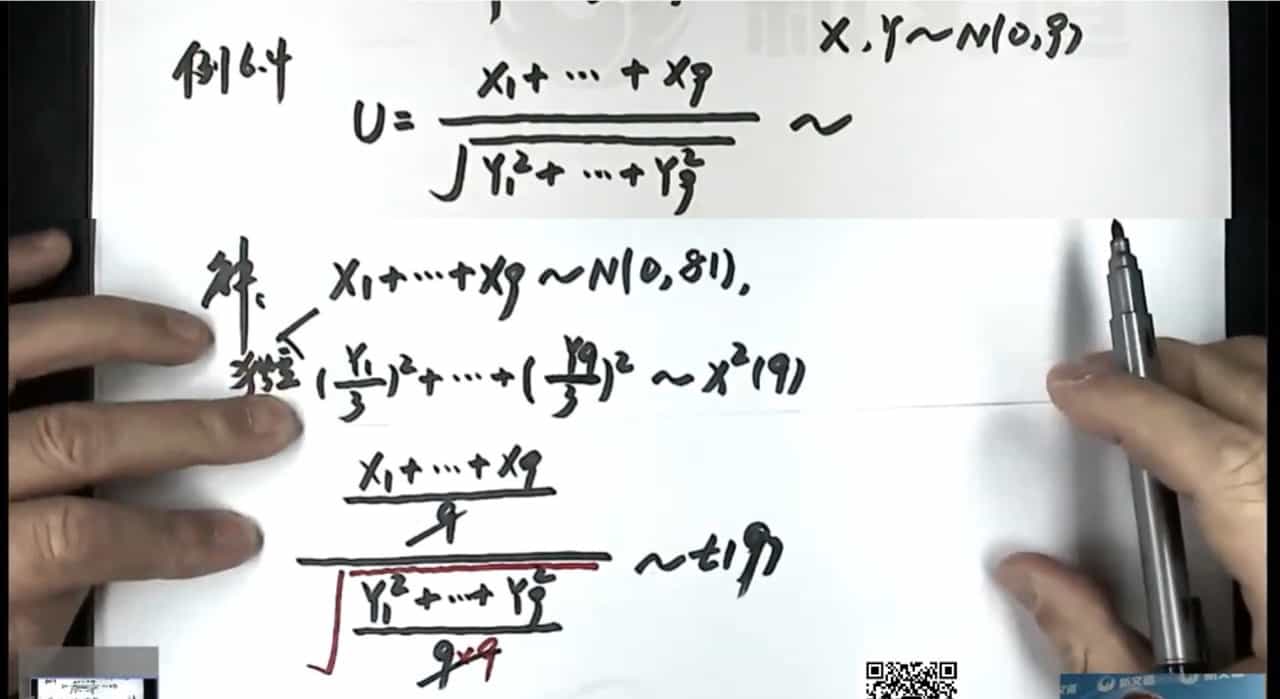 例6.4
X,Y~N(0,9)
U = (X₁+⋯+X₉)/√(Y₁²+⋯+Y₉²) ~
解、
X₁+⋯+X₉~N(0,81),
独立
(Y₁/3)²+⋯+(Y₉/3)²~χ²(9)
((X₁+⋯+X₉)/9)/√((Y₁²+⋯+Y₉²)/(9×9)) ~t(9)
新文道
新文道